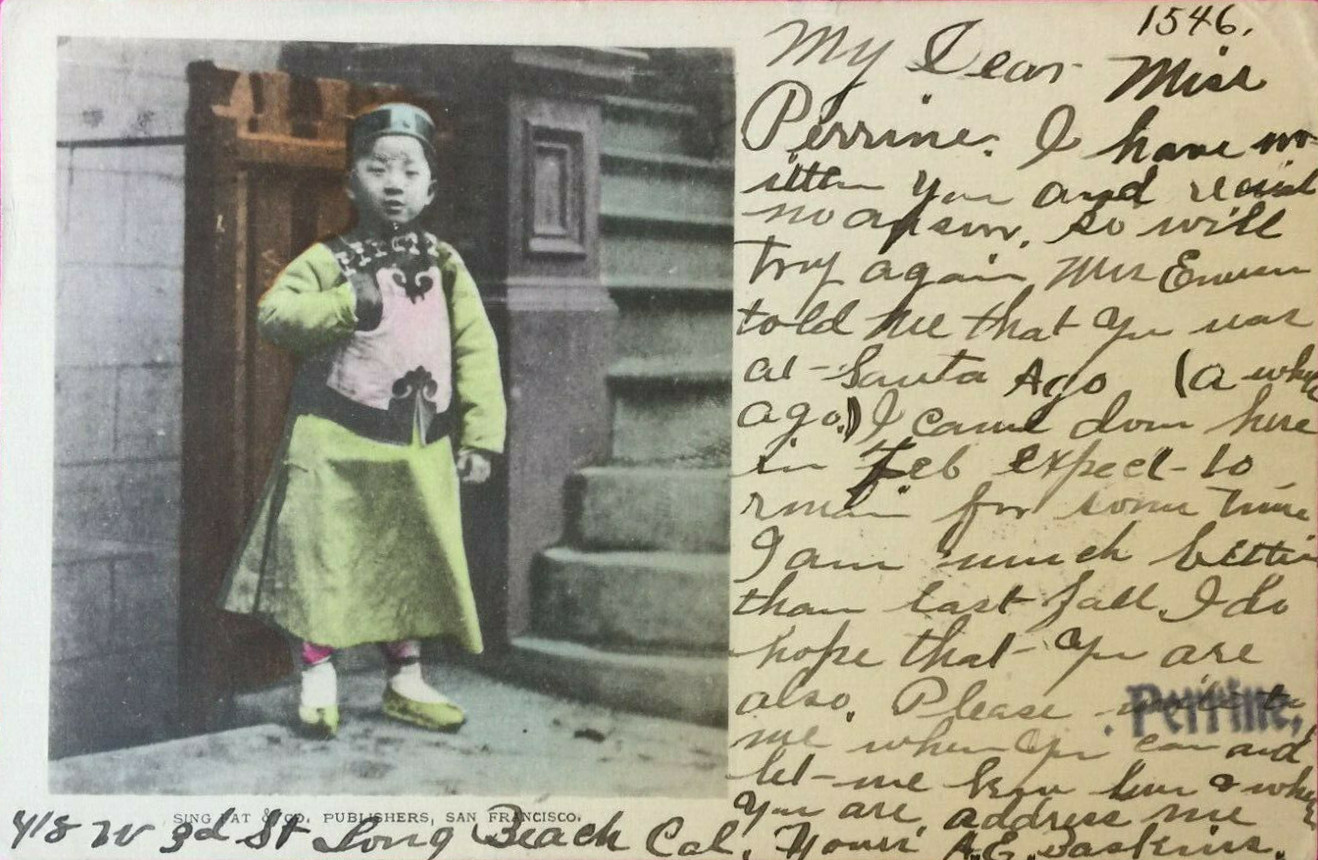 1546.
My Dear Miss
Perrine. I have wr
itten you and recievd
no answr, so will
try again Mrs
told me that you was
at Santa Ago (a while
ago.) I came down here
in Feb expect to
rmain for some time
I am much better
than last fall. I do
hope that you are
also. Please write to
Perrine,
me when you can and
let me know how & where
you are, address me
SING FAT & CO. PUBLISHERS, SAN FRANCISCO.
418 W 3d St Long Beach Cal, Yours A.E. Haskins.